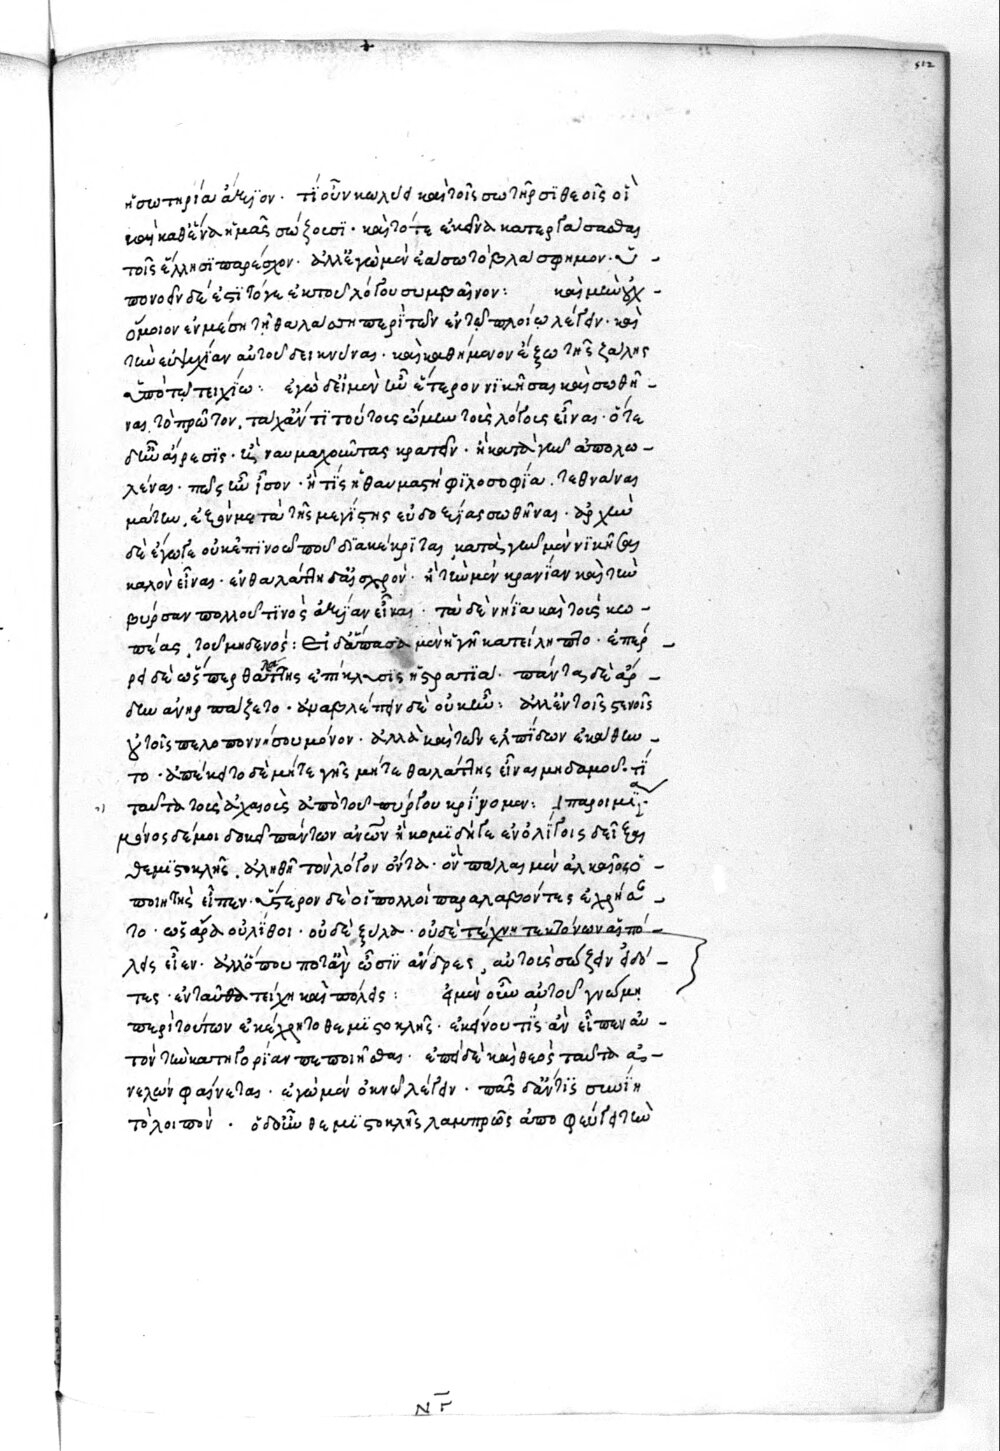 512
ἡ σωτηρία ἄξιον· τί οὖν κωλύει καὶ τοῖς σωτῆρσι θεοῖς οἳ
καὶ καθ' ἕνα ἡμᾶς σώζουσι· καὶ τότε ἐκεῖνα κατεργάσασθαι
τοῖς ἕλλησι παρέσχον· ἀλλ' ἐγὼ μὲν ἐάσω τὸ βλάσφημον· ὕ -
πονοεῖν δέ ἐστί τό γε ἐκ τοῦ λόγου συμβαῖνον: καὶ μὴν οὐχ -
ὅμοιον ἐν μέσῃ τῇ θαλάσσῃ περὶ τῶν ἐν τῷ πλοίῳ λέγειν· καὶ
τὴν εὐψυχίαν αὐτοῦ δεικνύναι· καὶ καθήμενον ἔξω τῆς ζάλης
ὑπὸ τῷ τειχίῳ: ἐγὼ δ' εἰ μὲν ἦν ἕτερον νικήσας καὶ σωθῆ -
ναι τὸ πρῶτον, τάχ' ἂν τι τούτοις ᾤμην τοῖς λόγοις εἶναι· ὅτε
δ' ἦν αἵρεσις· ἢ ναυμαχοῦντας κρατεῖν· ἢ κατὰ γῆν ἀπολω -
λέναι· πῶς ἦν ἴσον· ἢ τίς ἡ θαυμαστὴ φιλοσοφία· τεθνάναι
μάτην, ἐξὸν μετὰ τῆς μεγίστης εὐδοξίας σωθῆναι· ἀρχὴν
δὲ ἔγωγε οὐκ ἐπινοῶ ποῦ διακέκριται, κατὰ γῆν μὲν νικῆσαι
καλὸν εἶναι· ἐν θαλάττῃ δ' αἰσχρόν· ἢ τὴν μὲν κρανίαν καὶ τὴν
βύρσαν πολλοῦ τινὸς ἀξίαν εἶναι· τὰ δὲ νήϊα καὶ τοὺς κω -
πέας, τοῦ μηδενός: εἰ δ' ἅπασα μὲν ἡ γῆ κατείληπτο· ἐπέρ -
ρει δὲ ὥσπερ θαλάττης ἐπίκλυσις ἡ στρατιά· πάντα δὲ ἄρ -
δην ἀνήρπάζετο· ἀναβλέπειν δὲ οὐκ ἦν: ἀλλ' ἐν τοῖς στενοῖς
οὐ τοῖς πελοποννήσου μόνον· ἀλλὰ καὶ τῶν ἐλπίδων ἐκάθην -
το· ἀπέκειτο δὲ μήτε γῆς μήτε θαλάττης εἶναι μηδαμοῦ· τί
ταῦτα τοῖς ἀχαιοῖς ἀπὸ τοῦ πύργου κρίνομεν: παροιμία·
μόνος δέ μοι δοκεῖ πάντων ἀνθρώπων ἢ κομιδῇ γε ἐν ὀλίγοις δεῖξαι
θεμιστοκλῆς, ἀληθῆ τὸν λόγον ὄντα· ὃν πάλαι μὲν ἀλκαῖος ὁ
ποιητὴς εἶπεν· ὕστερον δὲ οἱ πολλοὶ παραλαβόντες ἐχρήσαν -
το· ὡς ἄρα οὐ λίθοι· οὐδὲ ξύλα· οὐδὲ τέχνη τεκτόνων αἱ πό -
λεις εἶεν· ἀλλ' ὅπου ποτ' ἂν ὦσιν ἄνδρες, αὑτοὺς σώζειν εἰδό -
τες· ἐνταῦθα τείχη καὶ πόλεις: εἰ μὲν οὖν αὐτοῦ γνώμῃ
περὶ τούτων ἐκέχρητο θεμιστοκλῆς· ἐκείνου τίς ἂν εἶπεν αὐ -
τὸν τὴν κατηγορίαν πεποιῆσθαι· ἐπεὶ δὲ καὶ θεὸς ταῦτα ἀ -
νελὼν φαίνεται· ἐγὼ μὲν ὀκνῶ λέγειν· πᾶς δ' ἄν τις συνίῃ
τὸ λοιπόν· ὁ δ' οὖν θεμιστοκλῆς λαμπρῶς ἀποφεύγει τὴν
ΝΓ